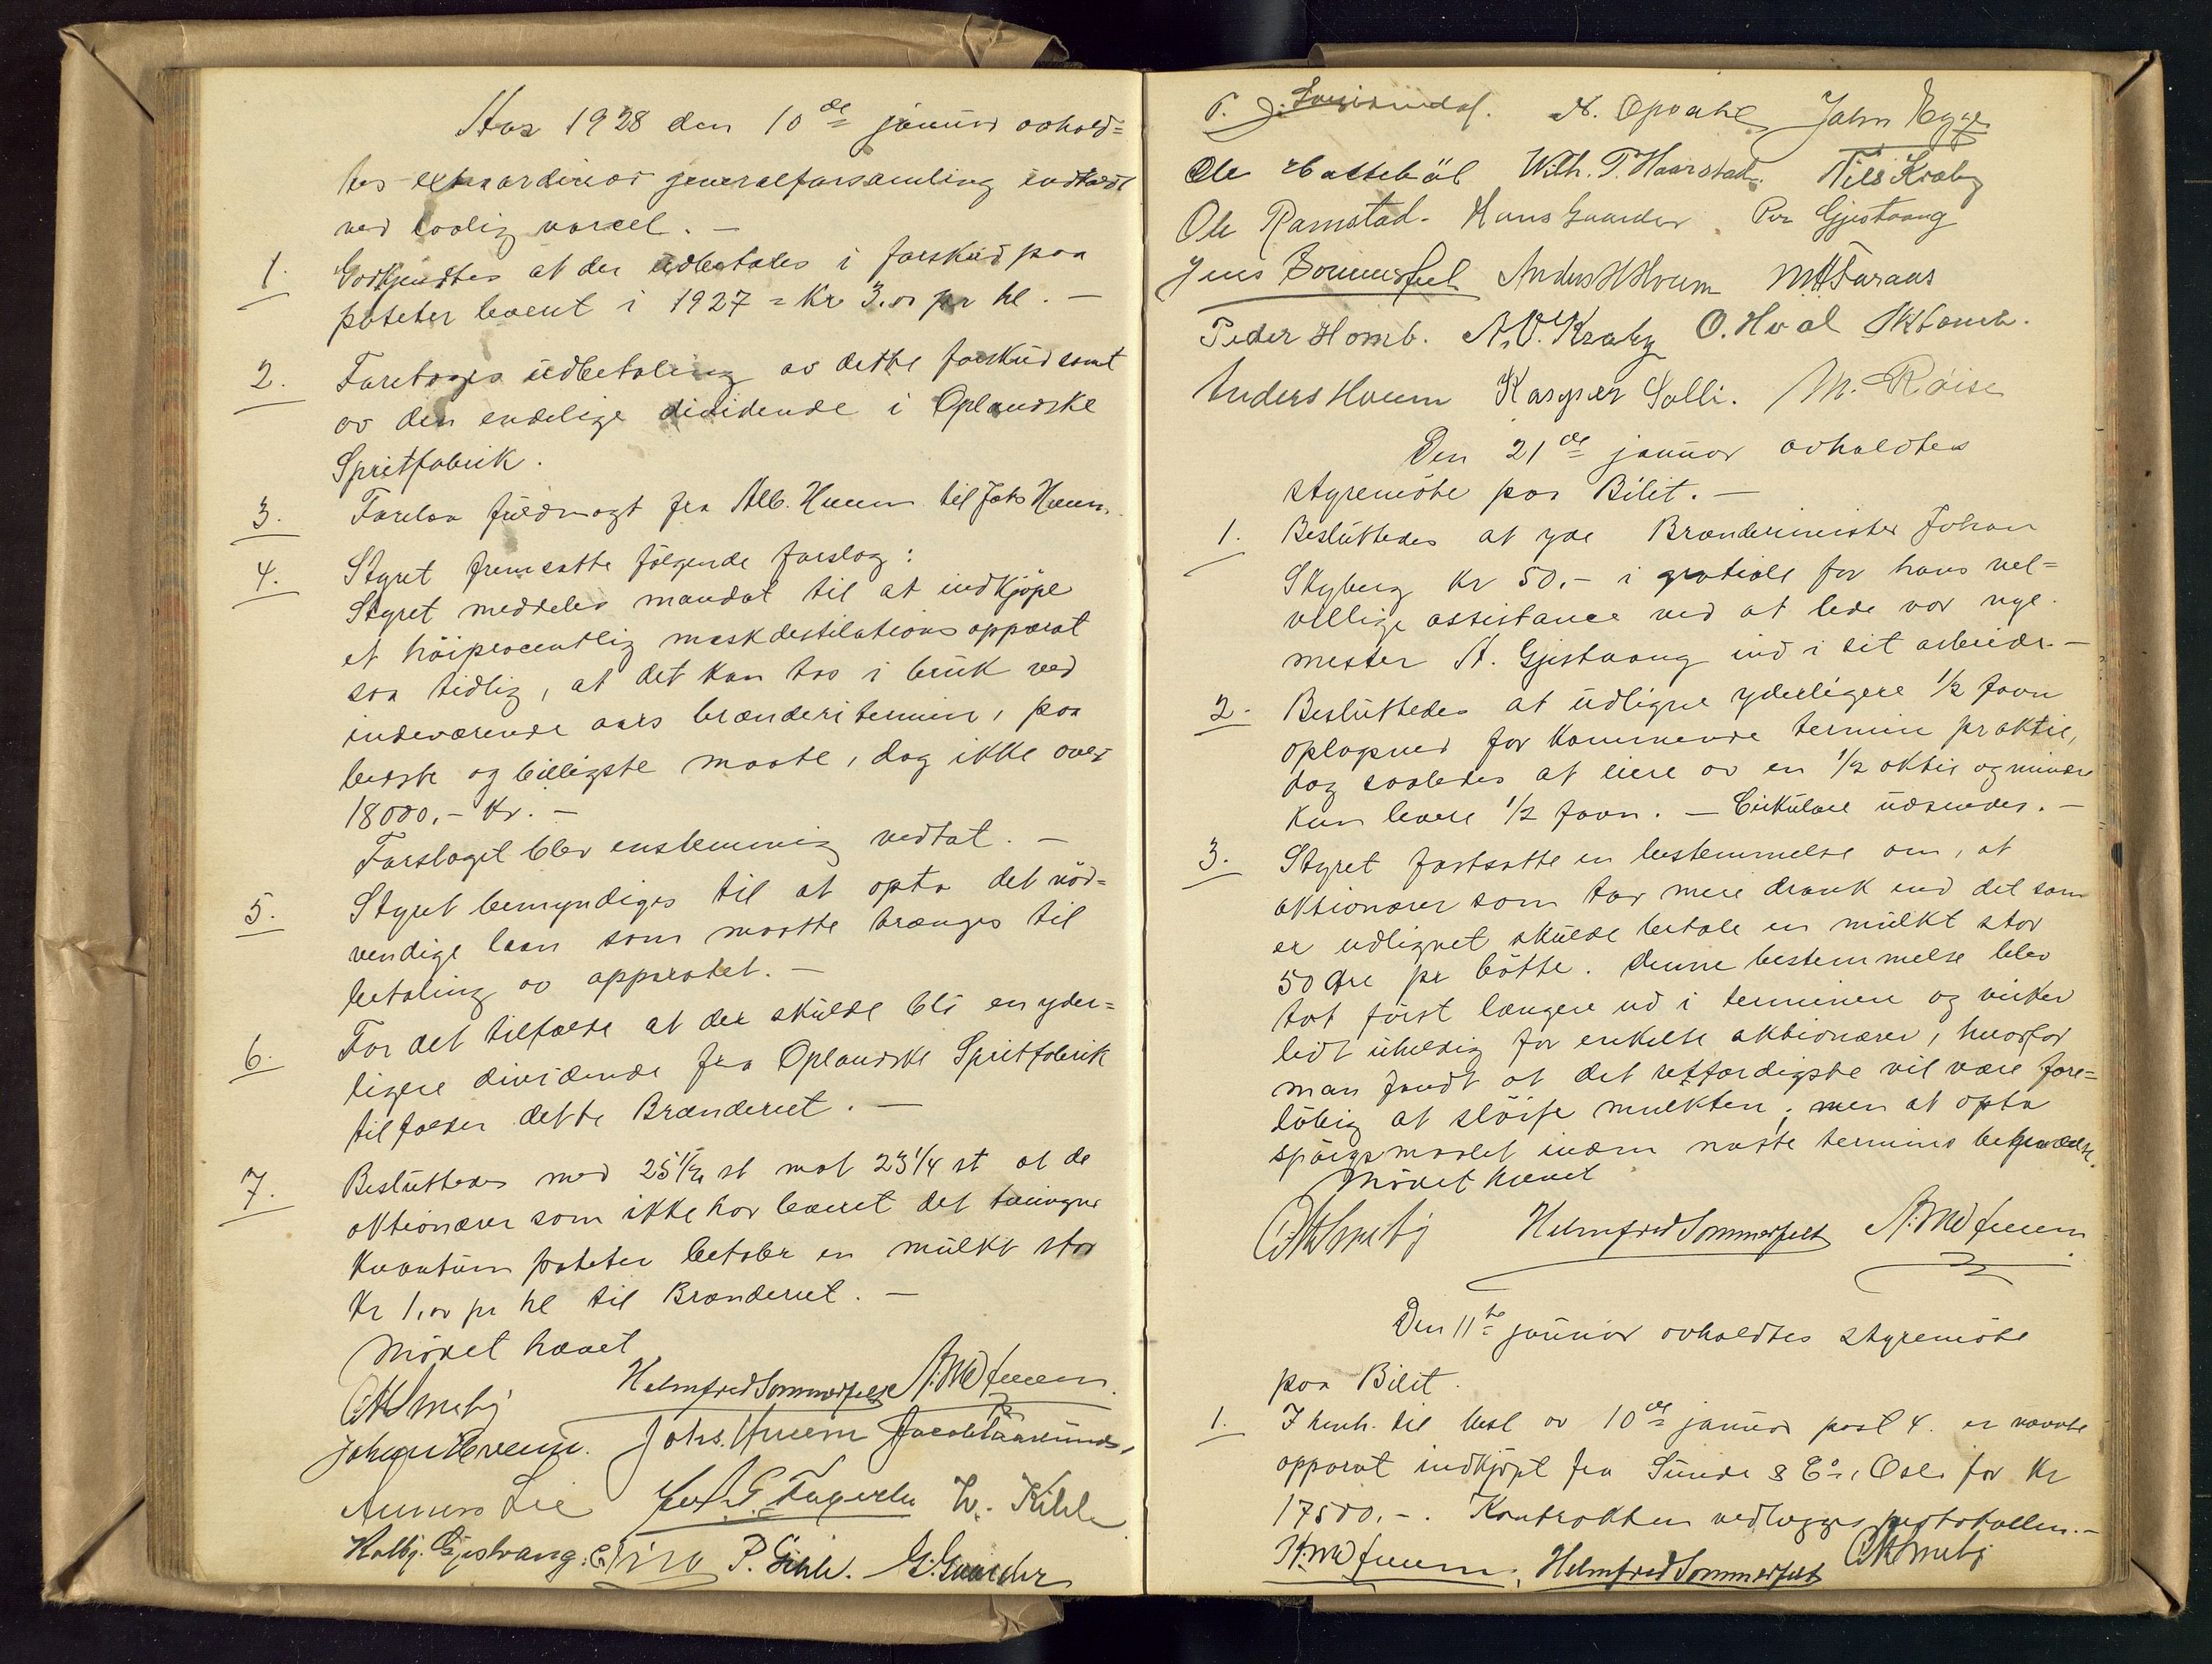 Aar 1928 den 10de januar avhold=
tes extraordinær generalforsamling indkaldt
ved lovlig varsel. –
1. Godkjendtes at der udbetales i forskud paa
poteter levert i 1927 = Kr 3.00 pr hl. –
2. Foretages udbetaling av dette forskud samt
av den endelige dividende i Oplandske
Spritfabrik.
3. Forelaa fuldmagt fra Alb. Huem til Johs Huem.
4. Styret fremsatte følgende forslag:
Styret meddeles mandat til at indkjøpe
et høiprocentlig maskdestilations apparat
saa tidlig, at det kan tas i bruk ved
indeværende aars brænderitermin, paa
bedste og billigste maate, dog ikke over
18000,- Kr. –
Forslaget blev enstemmig vedtat. –
5. Styret bemyndiges til at opta det nød=
vendige laan som maatte trænges til
betaling av apparatet. –
6. For det tilfælde at der skulde bli en yder=
ligere dividende fra Oplandske Spritfabrik
tilfalder dette Brænderiet. –
7. Besluttedes med 25 1/4 st mot 23 1/4 st at de
aktionærer som ikke har levert det tvungne
kvantum poteter betaler en mulkt stor
Kr 1,00 pr hl til Brænderiet. –
Møtet hævet
Helmfred Sommerfelt
Johs. Huem
Lie W. Kihle
Halbj. Gjestvang. P. Gihle. G. Gaarder
N. Opsahl John Hygge
Ole Wilh. P. Haarstad. Nils Kraby
Ole Ramstad. Hans Gaarder Per Gjestvang
Jens Sommerfelt Anders H Hoem
Peder Homb. A. O. Kraby O. Hval
Anders Hoem Kasper Solli. M. Røise
Den 21de januar avholdtes
styremøte paa Bilit. –
1. Besluttedes at yde Brænderimester Johan
Skyberg Kr 50.- i gratiale for hans vel=
villige assistance ved at lede vor nye
mester A. Gjestvang ind i sit arbeide. –
2. Besluttedes at udligne yderligere 1/2 favn
oplagsved for kommende termin pr aktie,
dog saaledes at eiere av en 1/2 aktie og mindre
kun levere 1/2 favn. – Cirkulære udsendes. –
3. Styret fastsatte en bestemmelse om, at
aktionærer som tar mere drank end det som
er udlignet skulde betale en mulkt stor
50 øre pr bøtte. Denne bestemmelse blev
tat først længere ud i terminen og virker
lidt uheldig for enkelte aktionærer, hvorfor
man fandt at det retfærdigste vil være fore=
løbig at sløife mulkten; men at opta
spørgsmaalet inden næste termins begyndelse.
Møtet hævet
Helmfred Sommerfelt
Den 11te januar avholdtes styremøte
paa Bilit.
1. I henh. til besl av 10de januar post 4. er nævnte
apparat indkjøpt fra Sunde & Co, Oslo for Kr
17500.-. Kontrakten vedlægges protokollen. –
Helmfred Sommerfelt